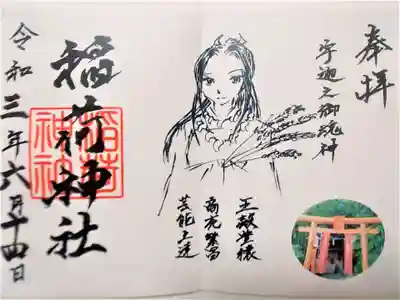 奉拝
宇迦之御魂神
五穀豊穣
商売繁昌
芸能上達
稲荷神社
令和三年六月十四日